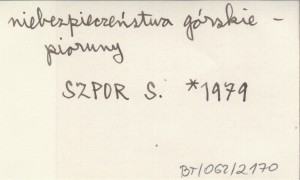 niebezpieczeństwa górskie –
pioruny
SZPOR S. *1979
BT/062/2170